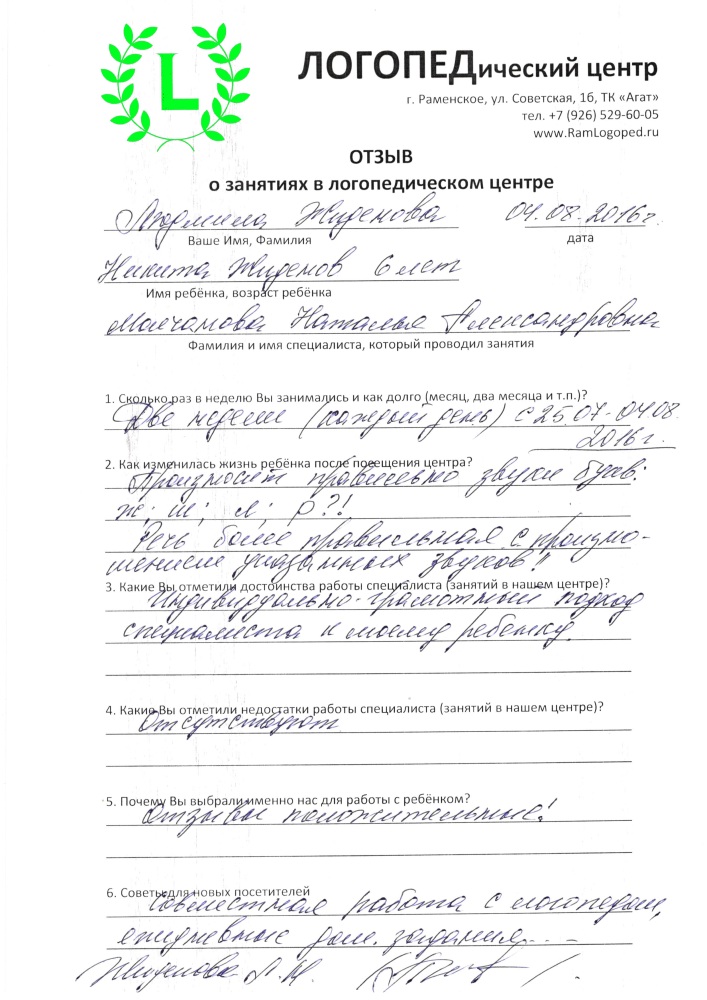 L
ЛОГОПЕДический центр
г. Раменское, ул. Советская, 1б, ТК «Агат»
тел. +7 (926) 529-60-05
www.RamLogoped.ru
ОТЗЫВ
о занятиях в логопедическом центре
Людмила Жиденова 04.08.2016г.
Ваше Имя, Фамилия дата
Никита Жиденов 6 лет
Имя ребёнка, возраст ребёнка
Молчанова Наталья Александровна
Фамилия и имя специалиста, который проводил занятия
1. Сколько раз в неделю Вы занимались и как долго (месяц, два месяца и т.п.)?
Две недели (каждый день) с 25.07-04.08.
2016г.
2. Как изменилась жизнь ребёнка после посещения центра?
Произносит правильно звуки букв:
ж; ш; л; р?!
Речь более правильная с произно-
шением указанных звуков!!
3. Какие Вы отметили достоинства работы специалиста (занятий в нашем центре)?
Индивидуально-грамотный подход
специалиста к моему ребенку.
4. Какие Вы отметили недостатки работы специалиста (занятий в нашем центре)?
Отсутствуют
5. Почему Вы выбрали именно нас для работы с ребёнком?
Отзывы положительные!
6. Советы для новых посетителей
Совместная работа с логопедом,
ежедневные дом. задания...
Жиденова Л.